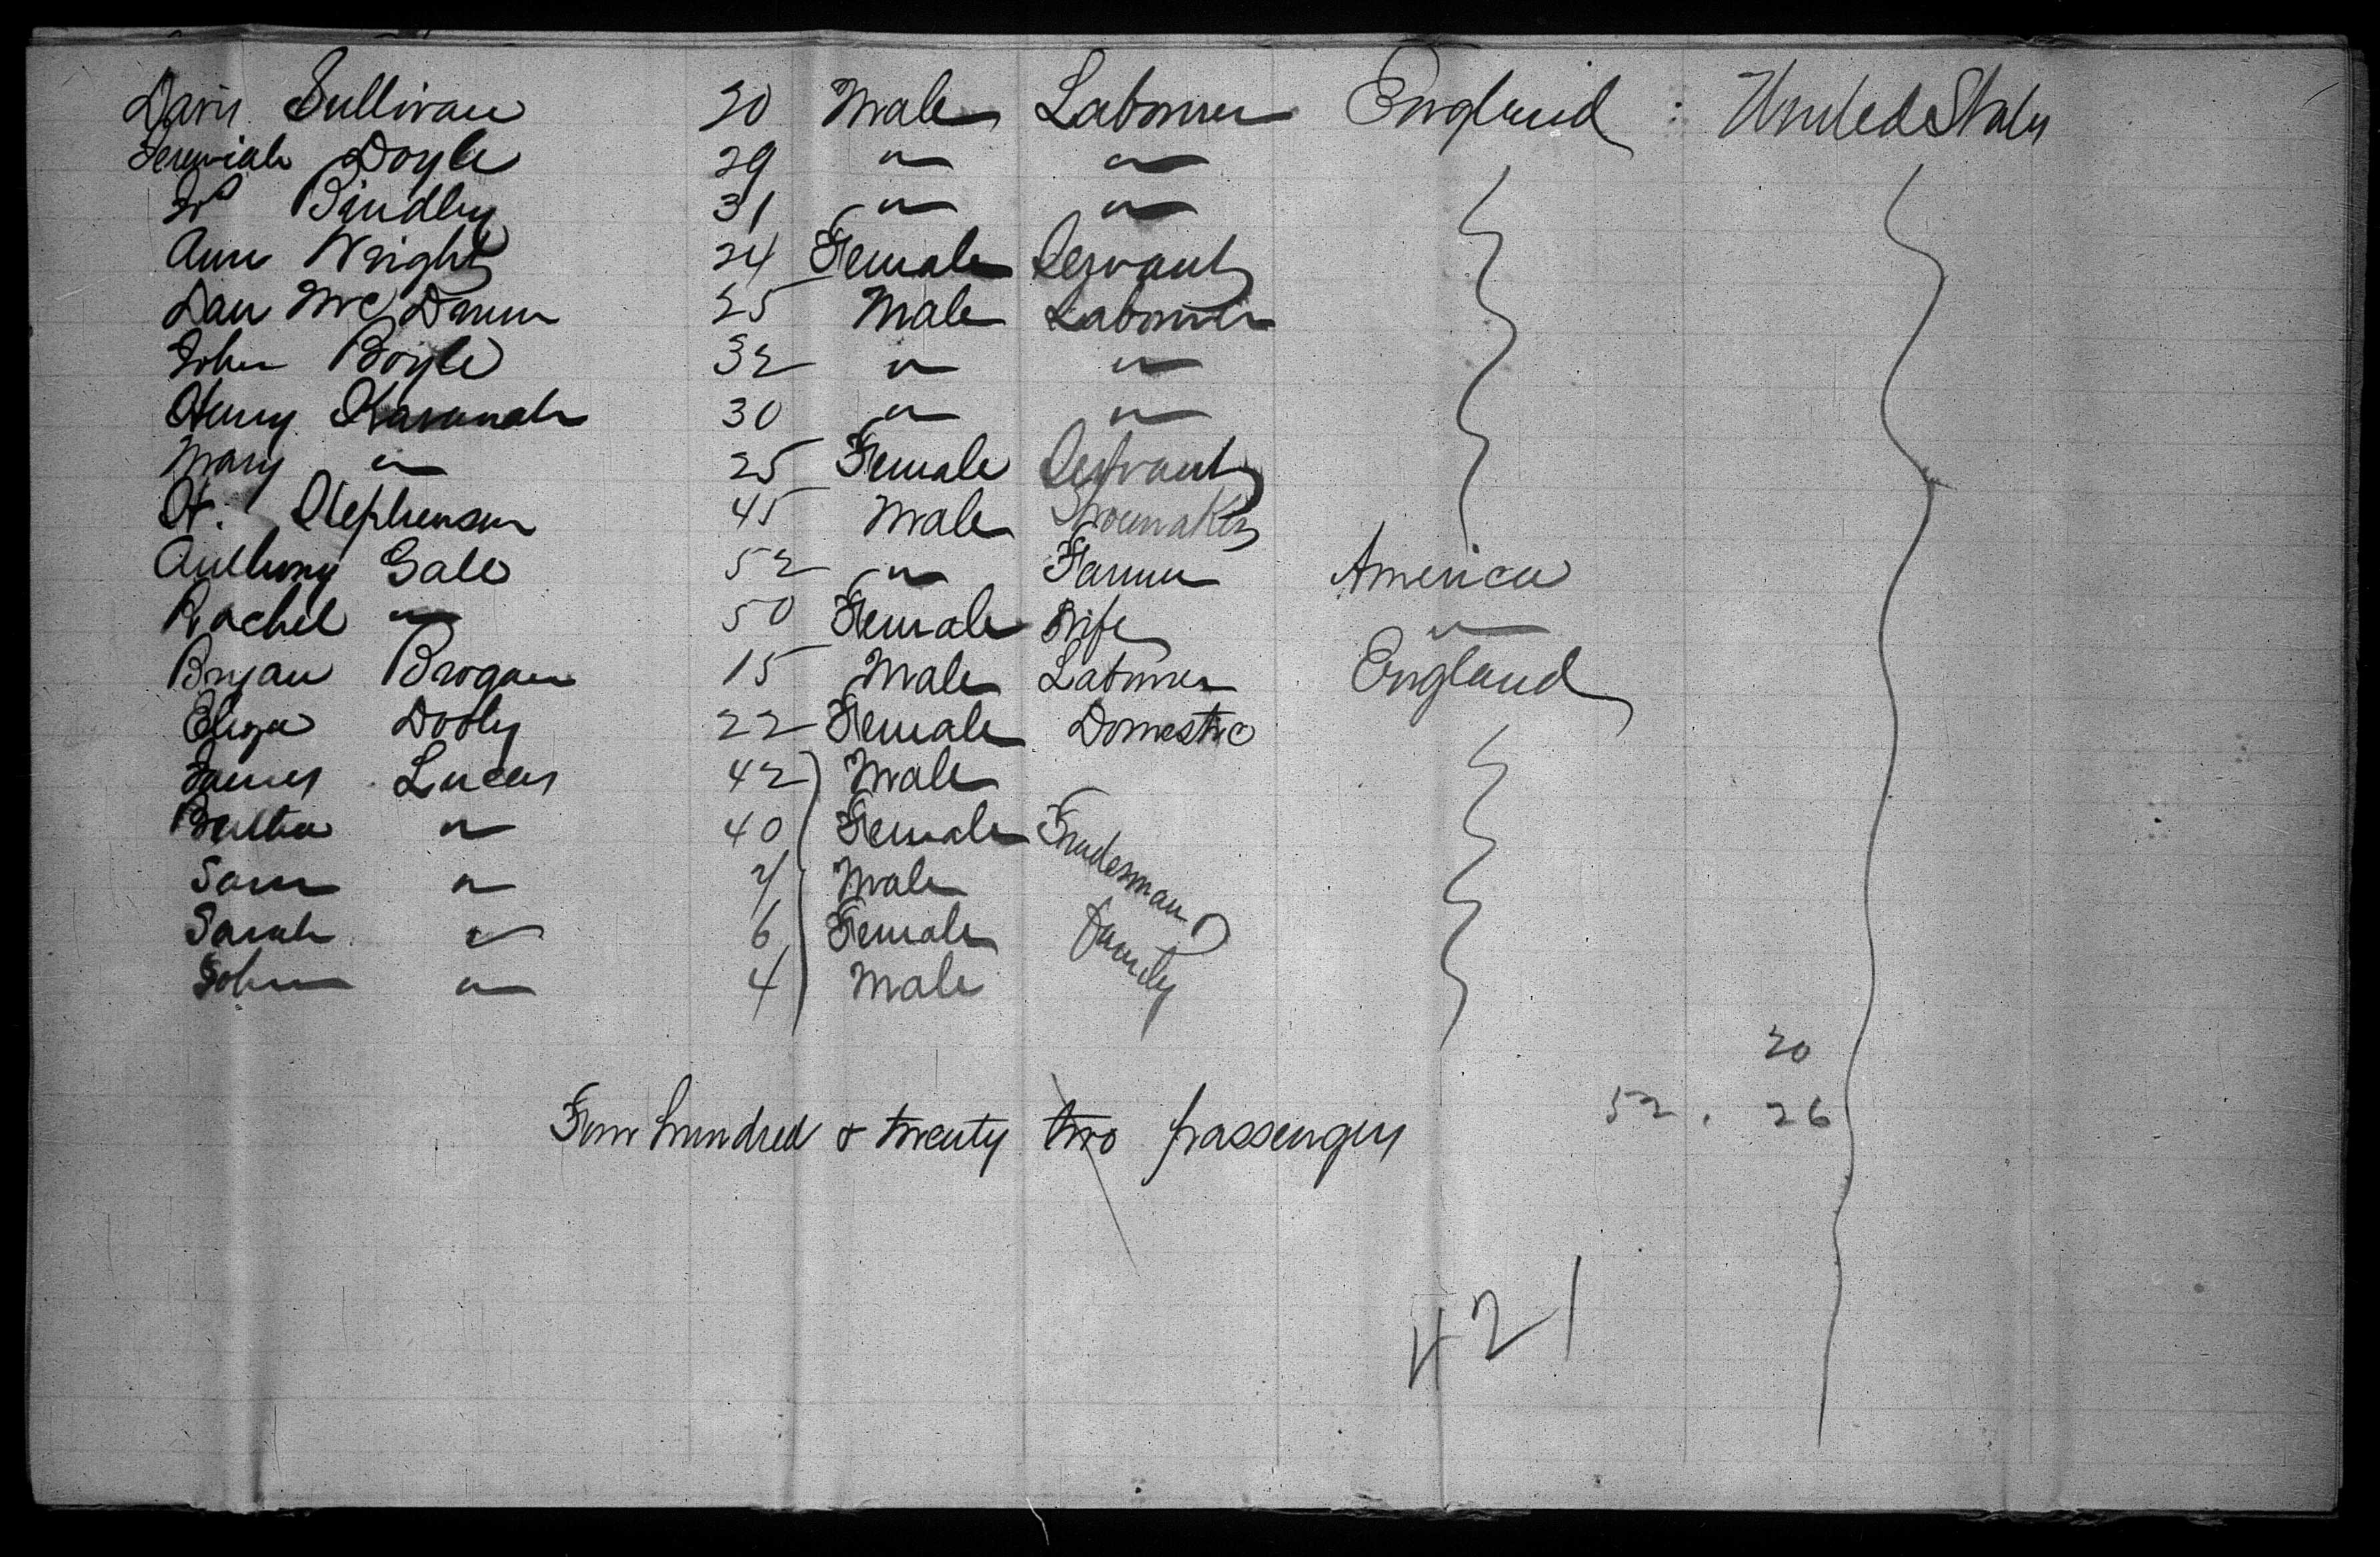 Davis Sullivan 30 Male Labourer England : United States
Jeremiah Doyle 29 " "
Bindley 31 " "
Ann Wright 24 Female Servant
Dan Mc Dann 25 Male Labourer
John Boyle 32 " "
Henry Kavanah 30 " "
Mary " 25 Female Servant
H. Stephenson 45 Male Shoemaker
Anthony Gale 52 " Farmer America
Rachel " 50 Female Wife "
Bryan Brogan 15 Male Labourer England
Eliza Dooly 22 Female Domestic
James Lucas 42 Male
Bertha " 40 Female Tradesman
Sam " 7 Male
Sarah " 6 Female family
John " 4 Male
20
52 . 26
Four hundred & twenty two passengers
421